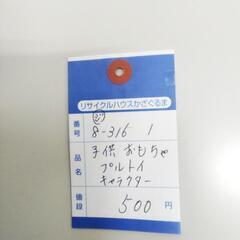 リサイクルハウスかざぐるま
番号 8-316 1
品名 子供 おもちゃ
プルトイ
キャラクター
値段 500 円